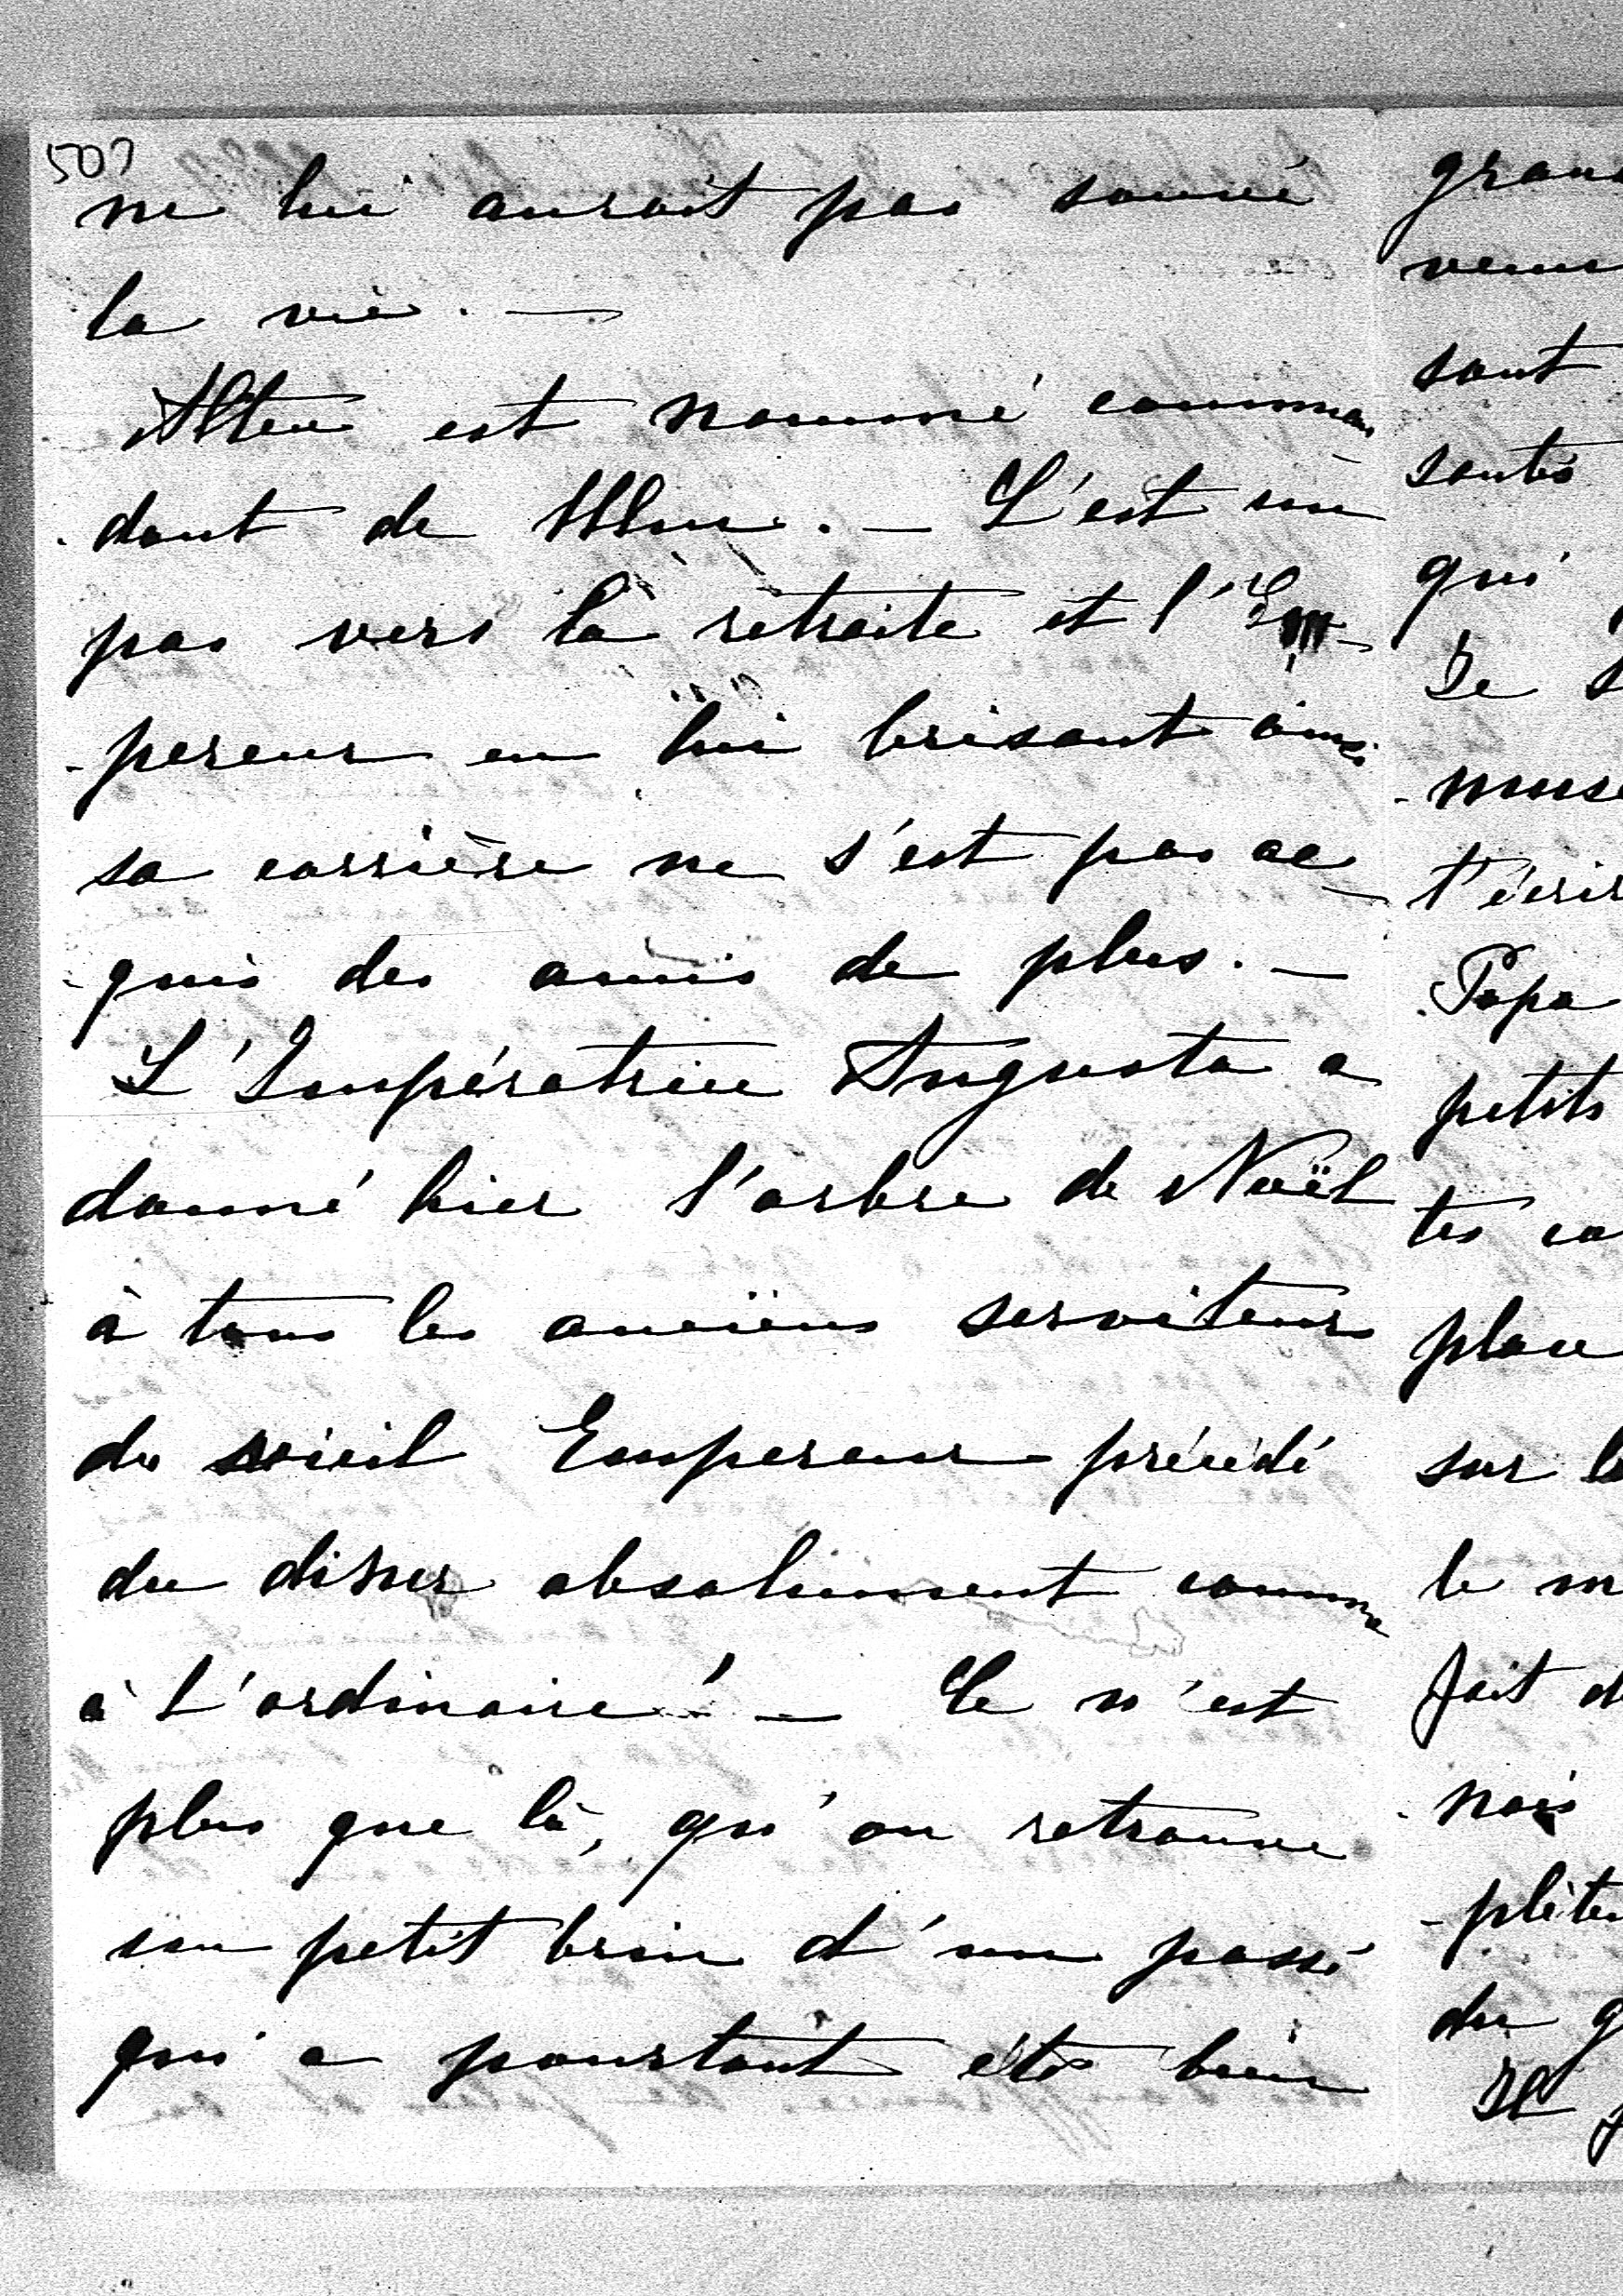 507
ne lui aurait pas sauvé
la vie. —
Alten est nommé comman
-dant de Ulm. — C'est un
pas vers la retraite et l'Em-
-pereur en lui brisant ainsi
sa carrière ne s'est pas ac-
-quis des amis de plus. —
L'Impératrice Augusta a
donné hier l'arbre de Noël
à tous les anciens serviteurs
du vieil Empereur précédé
du disner absolument comme
à l'ordinaire! — Ce n'est
plus que là, qu'on retrouve
un petit brin d'un passé
qui a pourtant été bien
gran
venu
sont
santés
qui
Je s
-muse
t'écrir
Papa
petits
tes ca
place
sur le
le m
fait d
-nais
-plète
du g
Il